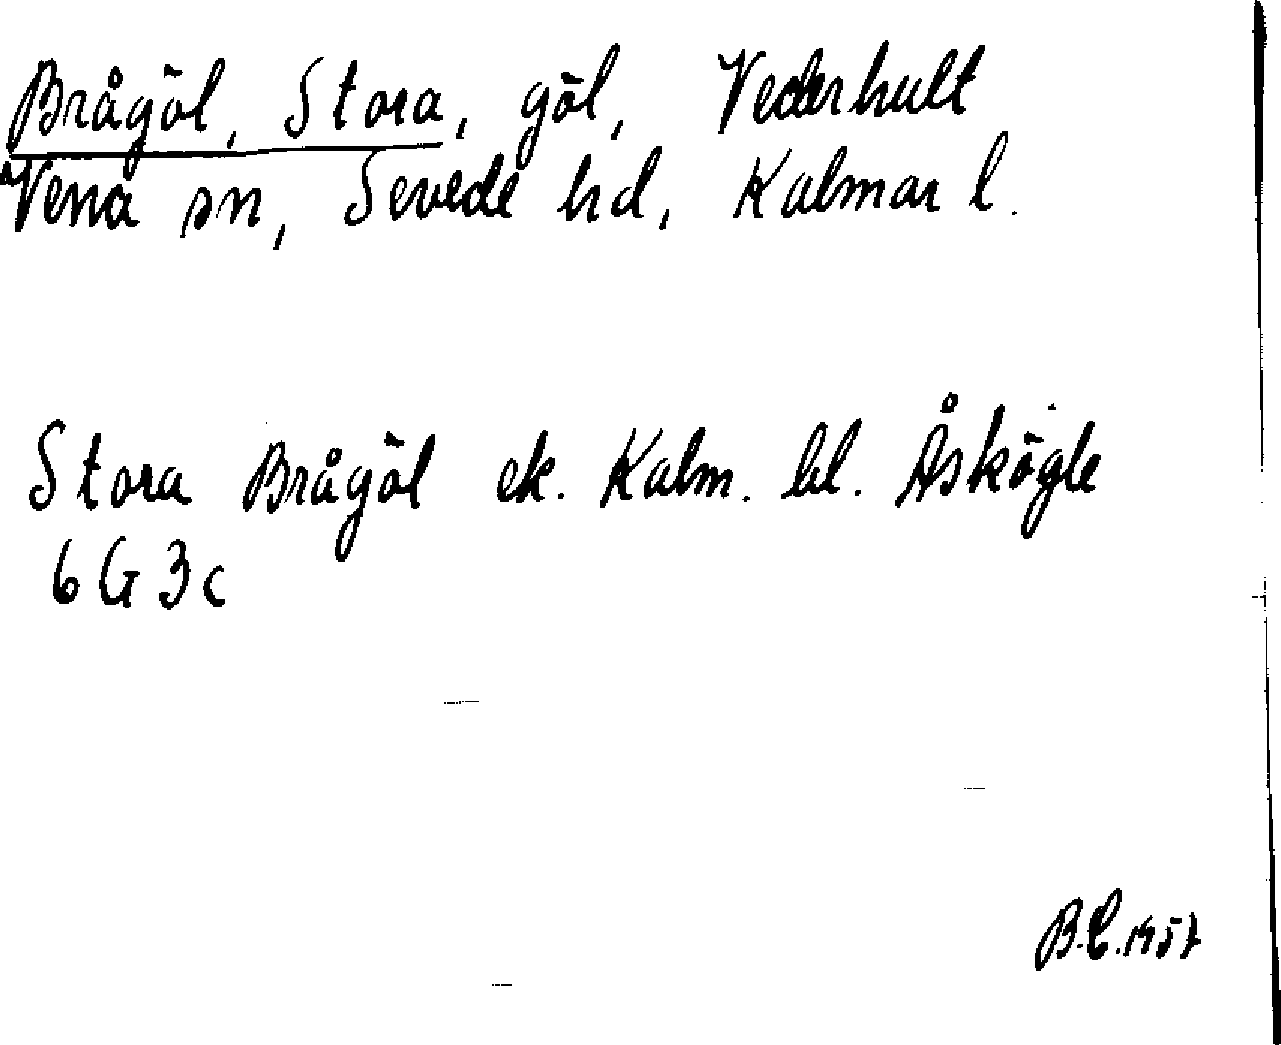 Brågöl, Stora, göl, Vederhult
Vena sn, Sevede hd, Kalmar l.
Stora Brågöl ek. Kalm. bl. Åskögle
6G3c
B.C. 1957